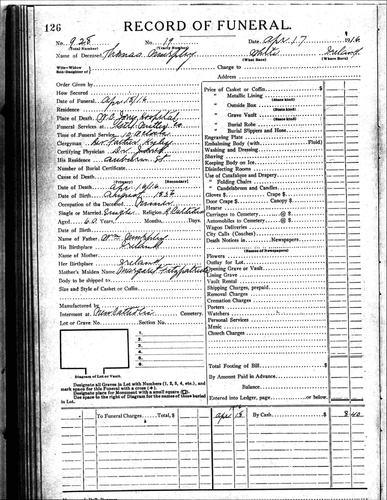 126
RECORD OF FUNERAL.
No. 928 No. 19 Date Apr 17 1916
(Total Number) (Yearly Number)
Name of Deceased Thomas Murphy White Ireland
(What Race) (Where Born)
Wife-Widow
Son-Daughter of
Charge to
Address
Order Given by
How Secured
Date of Funeral Apr 18/16
Residence
Place of Death Hospital
Funeral Services at
Time of Funeral Service 10 o'clock
Clergyman Rev Father
Certifying Physician Dr
His Residence Auburn St
Number of Burial Certificate
Cause of Death
(Secondary)
Date of Death Apr 16/16
Date of Birth August 1852
Occupation of the Deceased Farmer
Single or Married Single Religion Catholic
Aged 60 Years Months, Days.
Date of Birth
Name of Father Wm Murphy
His Birthplace Ireland
Name of Mother
Her Birthplace Ireland
Mother's Maiden Name Margaret Fitzpatrick
Body to be shipped to
Size and Style of Casket or Coffin
Manufactured by
Interment at New Catholic Cemetery.
Lot or Grave No. Section No.
Diagram of Lot or Vault.
Designate all Graves in Lot with Numbers (1, 2, 3, 4, etc.), and
mark space for this Funeral with a cross (+).
Designate place for Monument with a small square (□).
Use space to the right of Diagram for the names of those buried
in Lot.
Price of Casket or Coffin
" Metallic Lining
(State kind)
" Outside Box
(State kind)
" Grave Vault
(State kind)
" Burial Robe
" Burial Slippers and Hose
Engraving Plate
Embalming Body (with Fluid)
Washing and Dressing
Shaving
Keeping Body on Ice
Disinfecting Rooms
Use of Catafalque and Drapery
" Folding Chairs
" Candelabrum and Candles
Gloves $ Crape $
Door Crape $ Canopy $
Hearse
Carriages to Cemetery @ $
Automobiles to Cemetery @ $
Wagon Deliveries
City Calls (Coaches)
Death Notices in Newspapers
(Names of Newspapers)
Flowers
Outlay for Lot
Opening Grave or Vault
Lining Grave
Vault Rental
Shipping Charges, prepaid
Removal Charges
Cremation Charges
Porters
Watchers
Personal Services
Music
Church Charges
Total Footing of Bill
By Amount Paid in Advance
Balance,
Entered into Ledger, page or below.
To Funeral Charges Total, $
Apr 18 By Cash $ 8 40